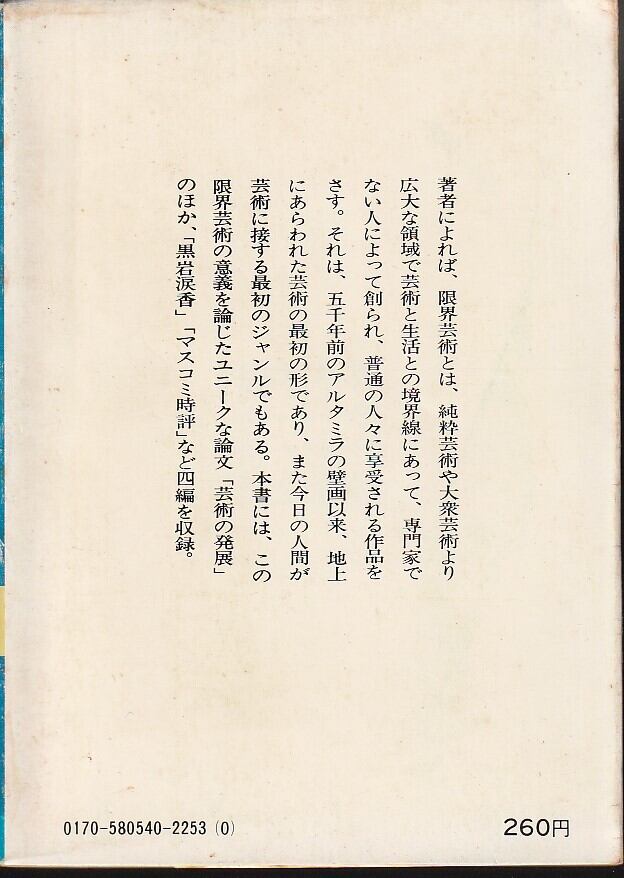 著者によれば、限界芸術とは、純粋芸術や大衆芸術より
広大な領域で芸術と生活との境界線にあって、専門家で
ない人によって創られ、普通の人々に享受される作品を
さす。それは、五千年前のアルタミラの壁画以来、地上
にあらわれた芸術の最初の形であり、また今日の人間が
芸術に接する最初のジャンルでもある。本書には、この
限界芸術の意義を論じたユニークな論文「芸術の発展」
のほか、「黒岩涙香」「マスコミ時評」など四編を収録。
0170-580540-2253 (0)
260円